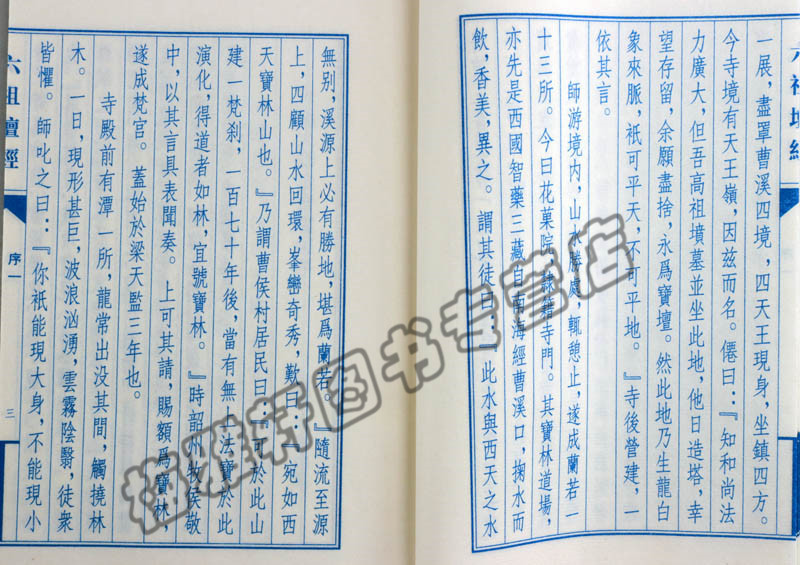 六祖壇經
一展，盡罩曹溪四境，四天王現身，坐鎮四方。
今寺境有天王嶺，因兹而名。僊曰：『知和尚法
力廣大，但吾高祖墳墓並坐此地，他日造塔，幸
望存留，余願盡捨，永爲寶壇。然此地乃生龍白
象來脈，衹可平天，不可平地。』寺後營建，一
依其言。
師游境内，山水勝處，輒憩止，遂成蘭若一
十三所。今曰花菓院，隸籍寺門。其寶林道場，
亦先是西國智藥三藏自南海經曹溪口，掬水而
飲，香美，異之。謂其徒曰：『此水與西天之水
無别，溪源上必有勝地，堪爲蘭若。』隨流至源
上，四顧山水回環，峯巒奇秀，歎曰：『宛如西
天寶林山也。』乃謂曹侯村居民曰：『可於此山
建一梵刹，一百七十年後，當有無上法寶於此
演化，得道者如林，宜號寶林。』時韶州牧侯敬
中，以其言具表聞奏。上可其請，賜額爲寶林，
遂成梵宫。蓋始於梁天監三年也。
寺殿前有潭一所，龍常出没其間，觸撓林
木。一日，現形甚巨，波浪汹湧，雲霧陰翳，徒衆
皆懼。師叱之曰：『你衹能現大身，不能現小
六祖壇經
序一
三
雅轩图书专营店